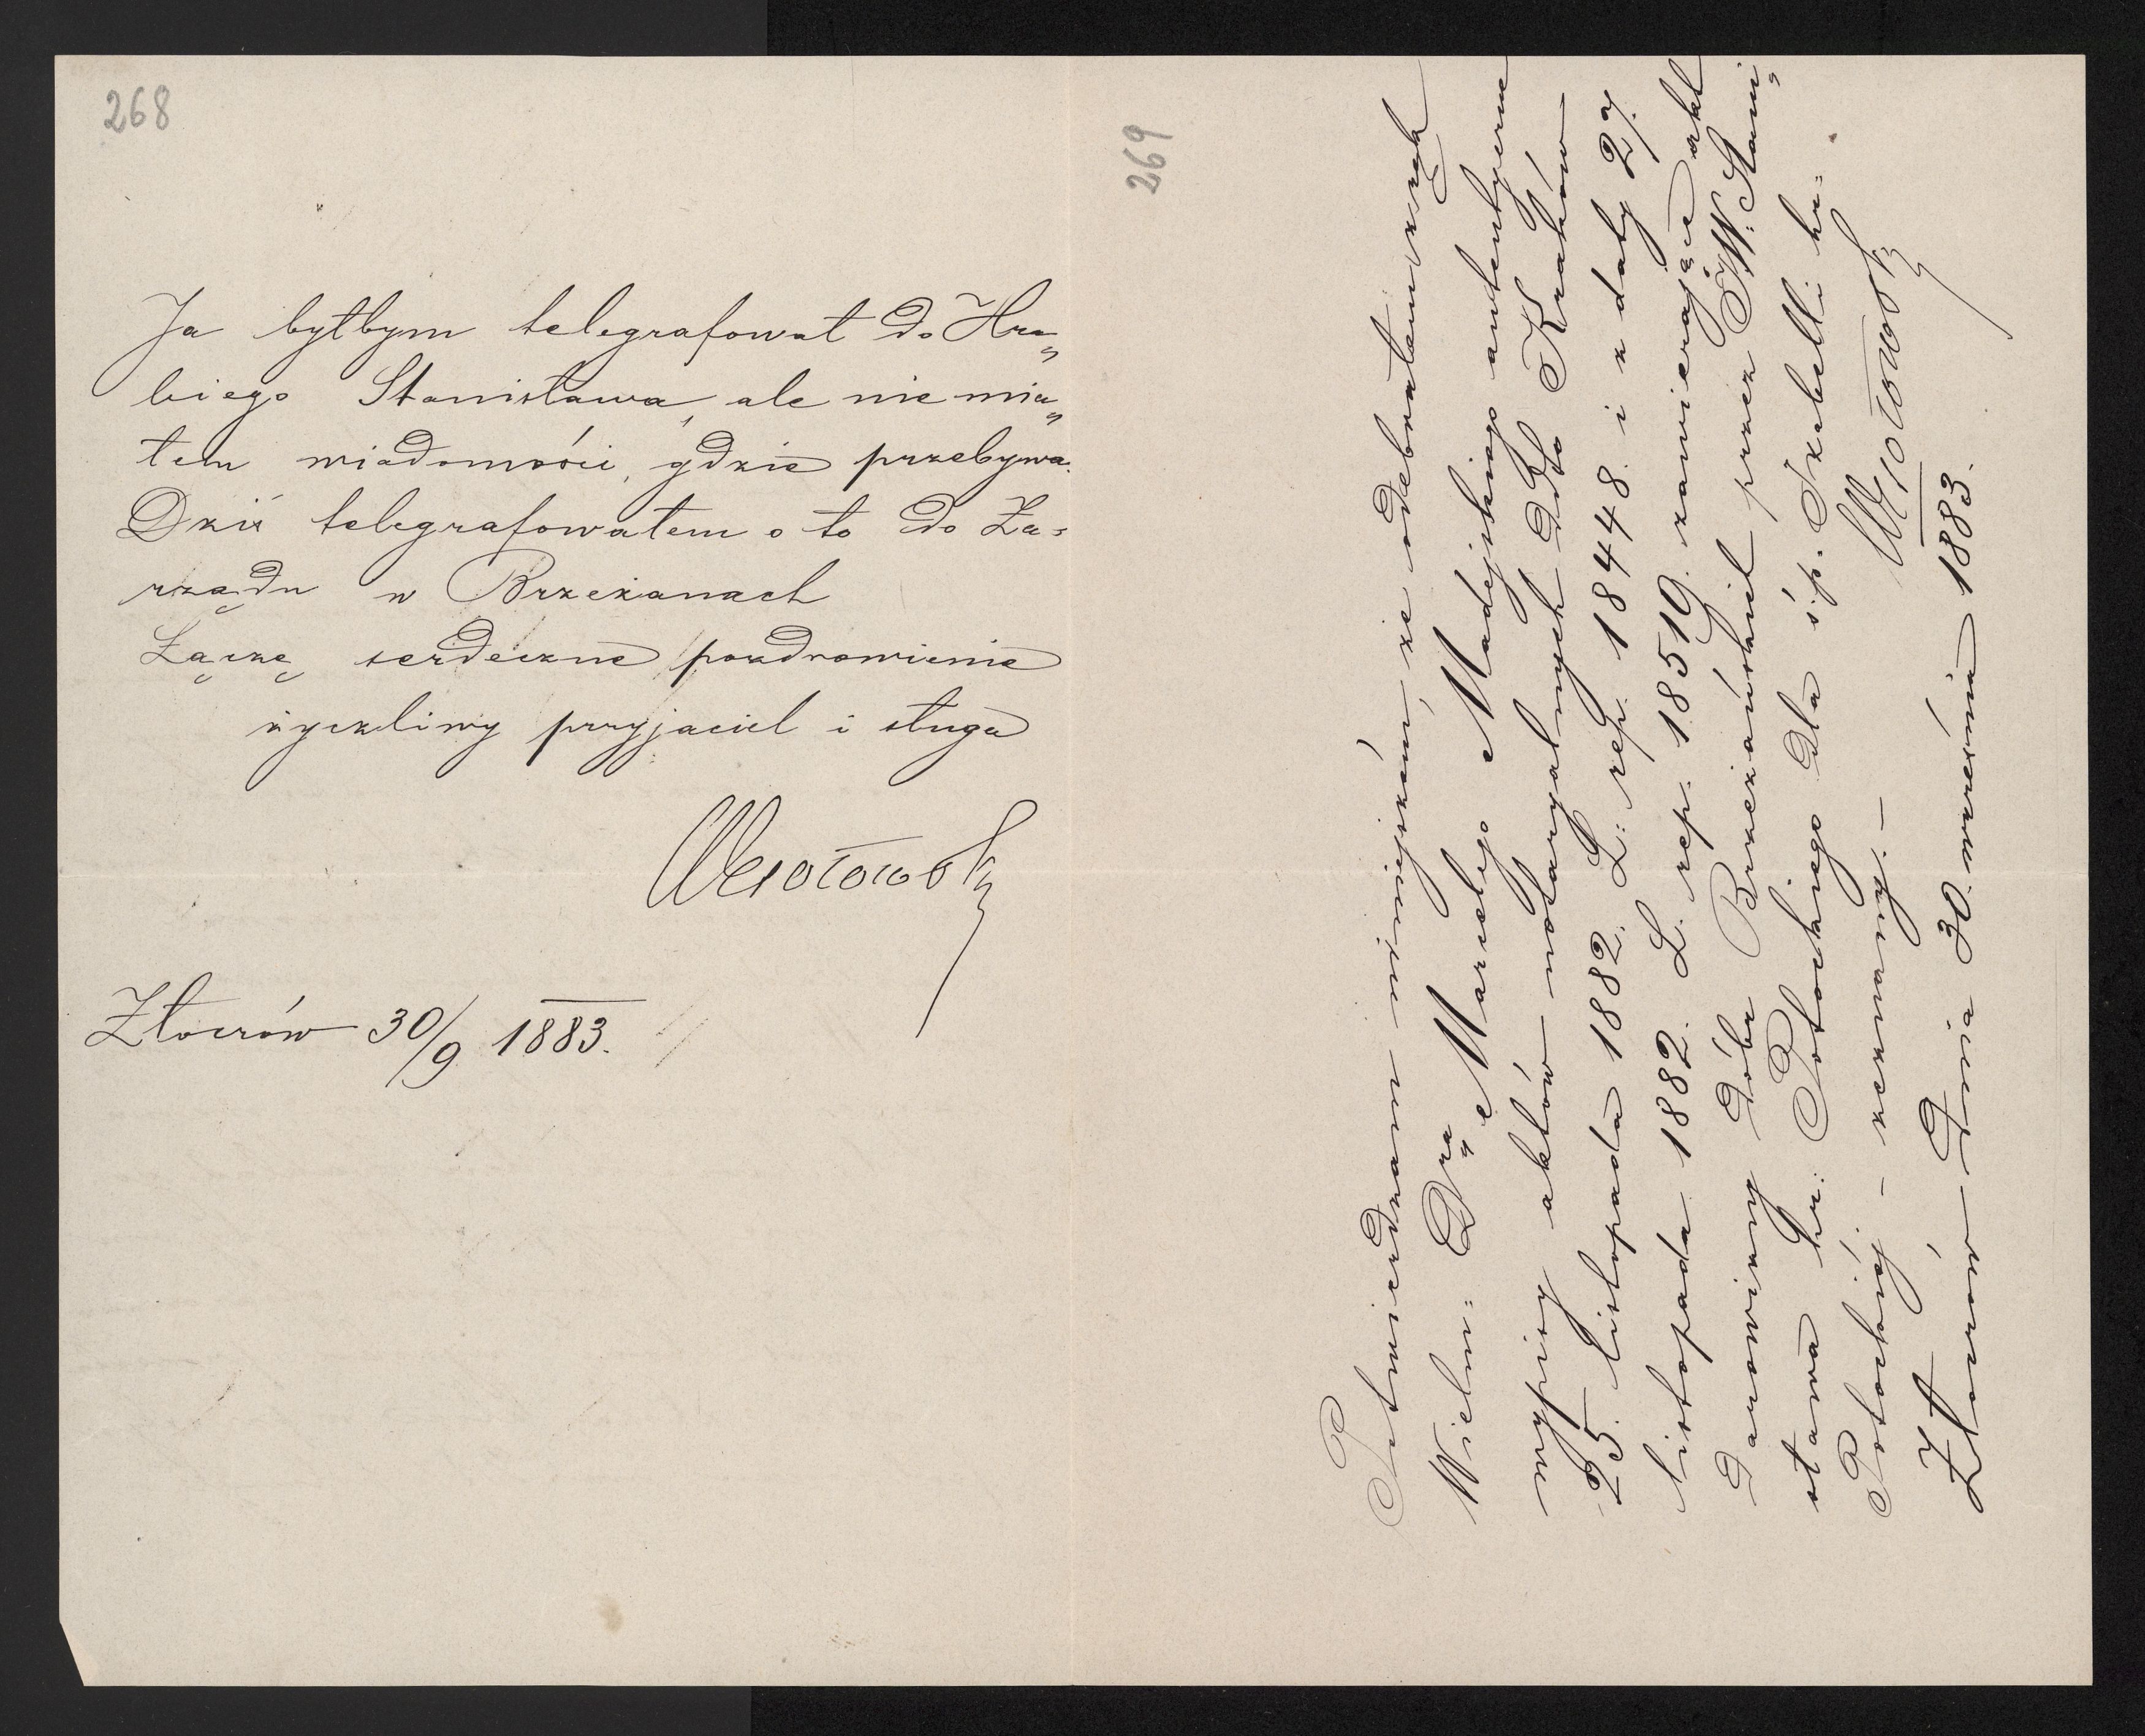 268
Ja byłbym telegrafował do Hra„
biego Stanisława, ale nie mia„
łem wiadomości, gdzie przebywa.
Dziś telegrafowałem o to do Za=
rządu w Brzeżanach
Łączę serdeczne pozdrowienie
życzliwy przyjaciel i sługa
Wesołowski
Złoczów 30/9 1883.
269
Potwierdzam niniejszém, że odebrałem z rąk
Wielm: Dra Marcelego Madejskiego autentyczne
wypisy aktów notaryalnych ddto Kraków
25. listopada 1882. L: rep. 18448. i z daty 27.
listopada 1882. L. rep. 18519. zawierające akt
darowizny dóbr Brzeżańskich przez JW. Stani„
sława hr. Potockiego dla ś.p. Izabelli hr.
Potockiéj – zeznany. –
Wesołowski
Złoczów Dnia 30. września 1883.